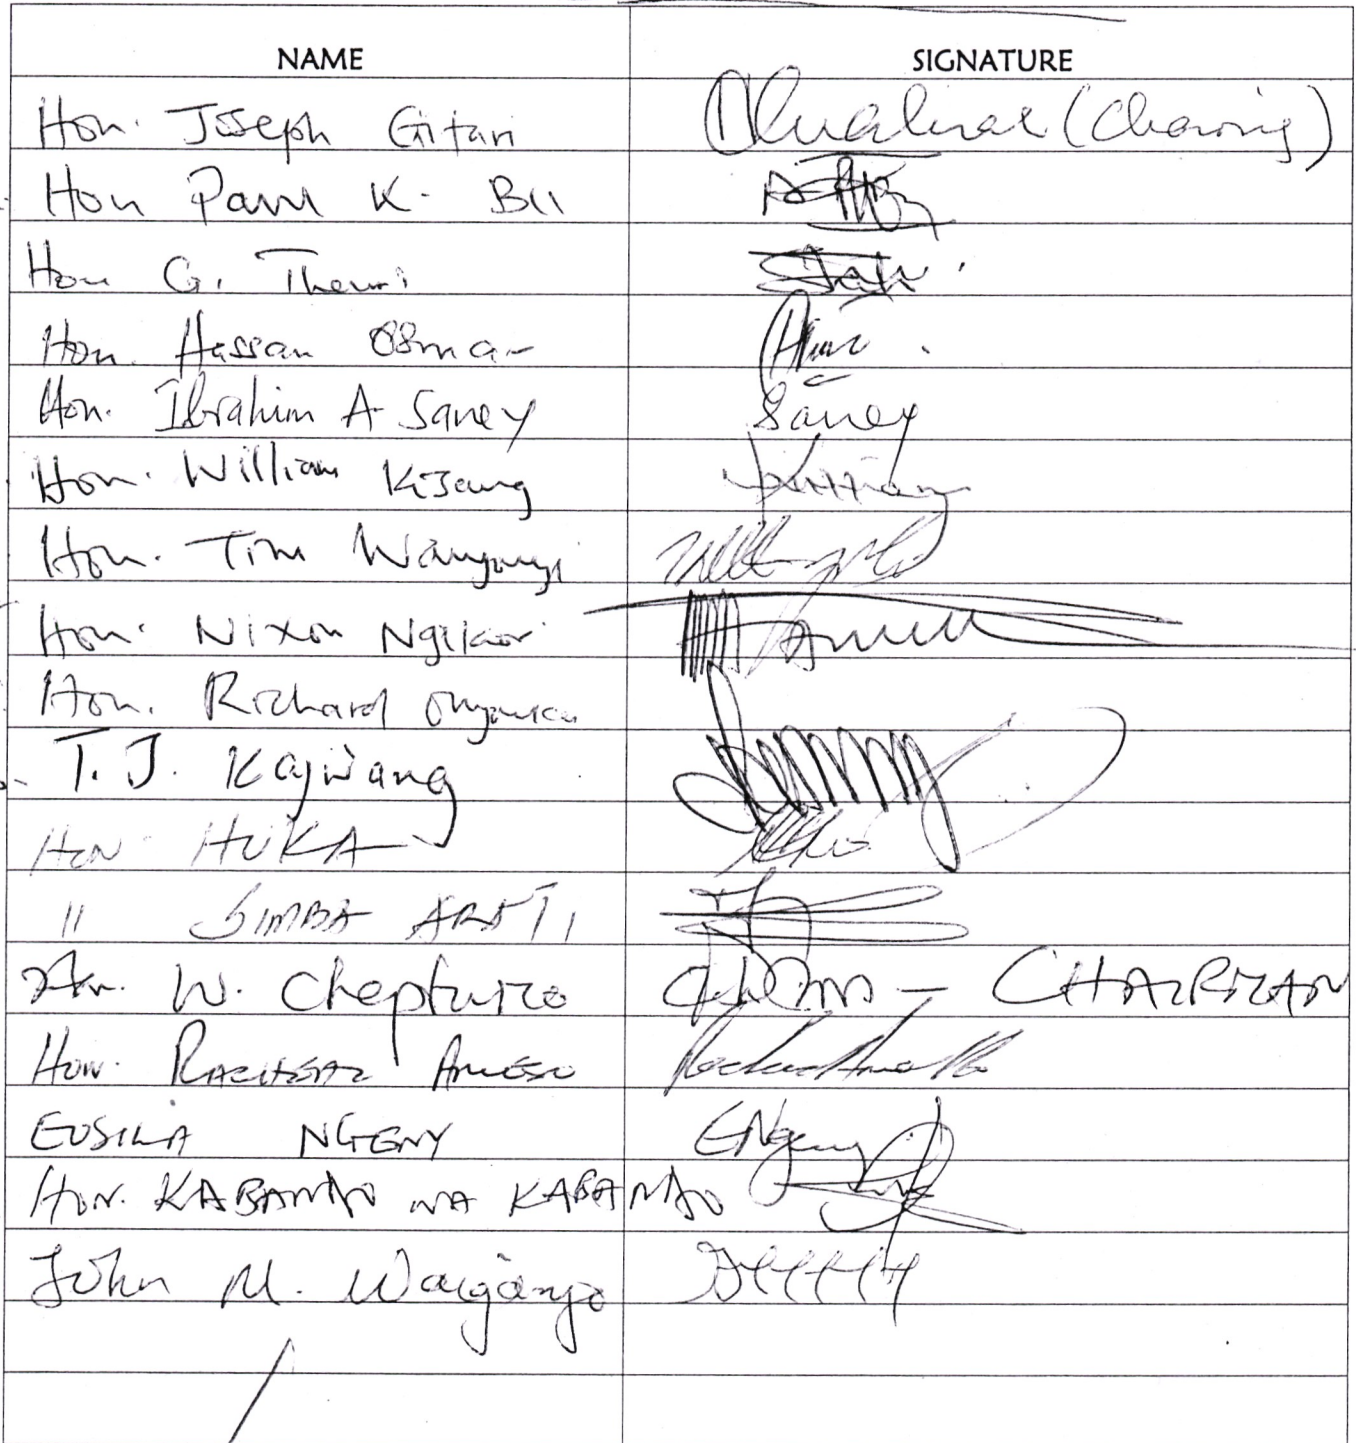 NAME SIGNATURE
Hon. Joseph Gitari (Chairing)
Hon Paul K. Bii
Hon G. Theuri
Hon. Hassan Osman
Hon. Ibrahim A. Saney Saney
Hon. William Kisang
Hon. Tim Wanyonyi
Hon. Nixon Ngikor
Hon. Richard Onyonka
T.J. Kajwang
HON HUKA
11 SIMBA ARATI
Hon. W. Cheptumo — CHAIRMAN
Hon. RACHEAL AMESO
EUSILA NGENY ENgeny
HON. KABANDO WA KABANDO
John M. Waiganjo